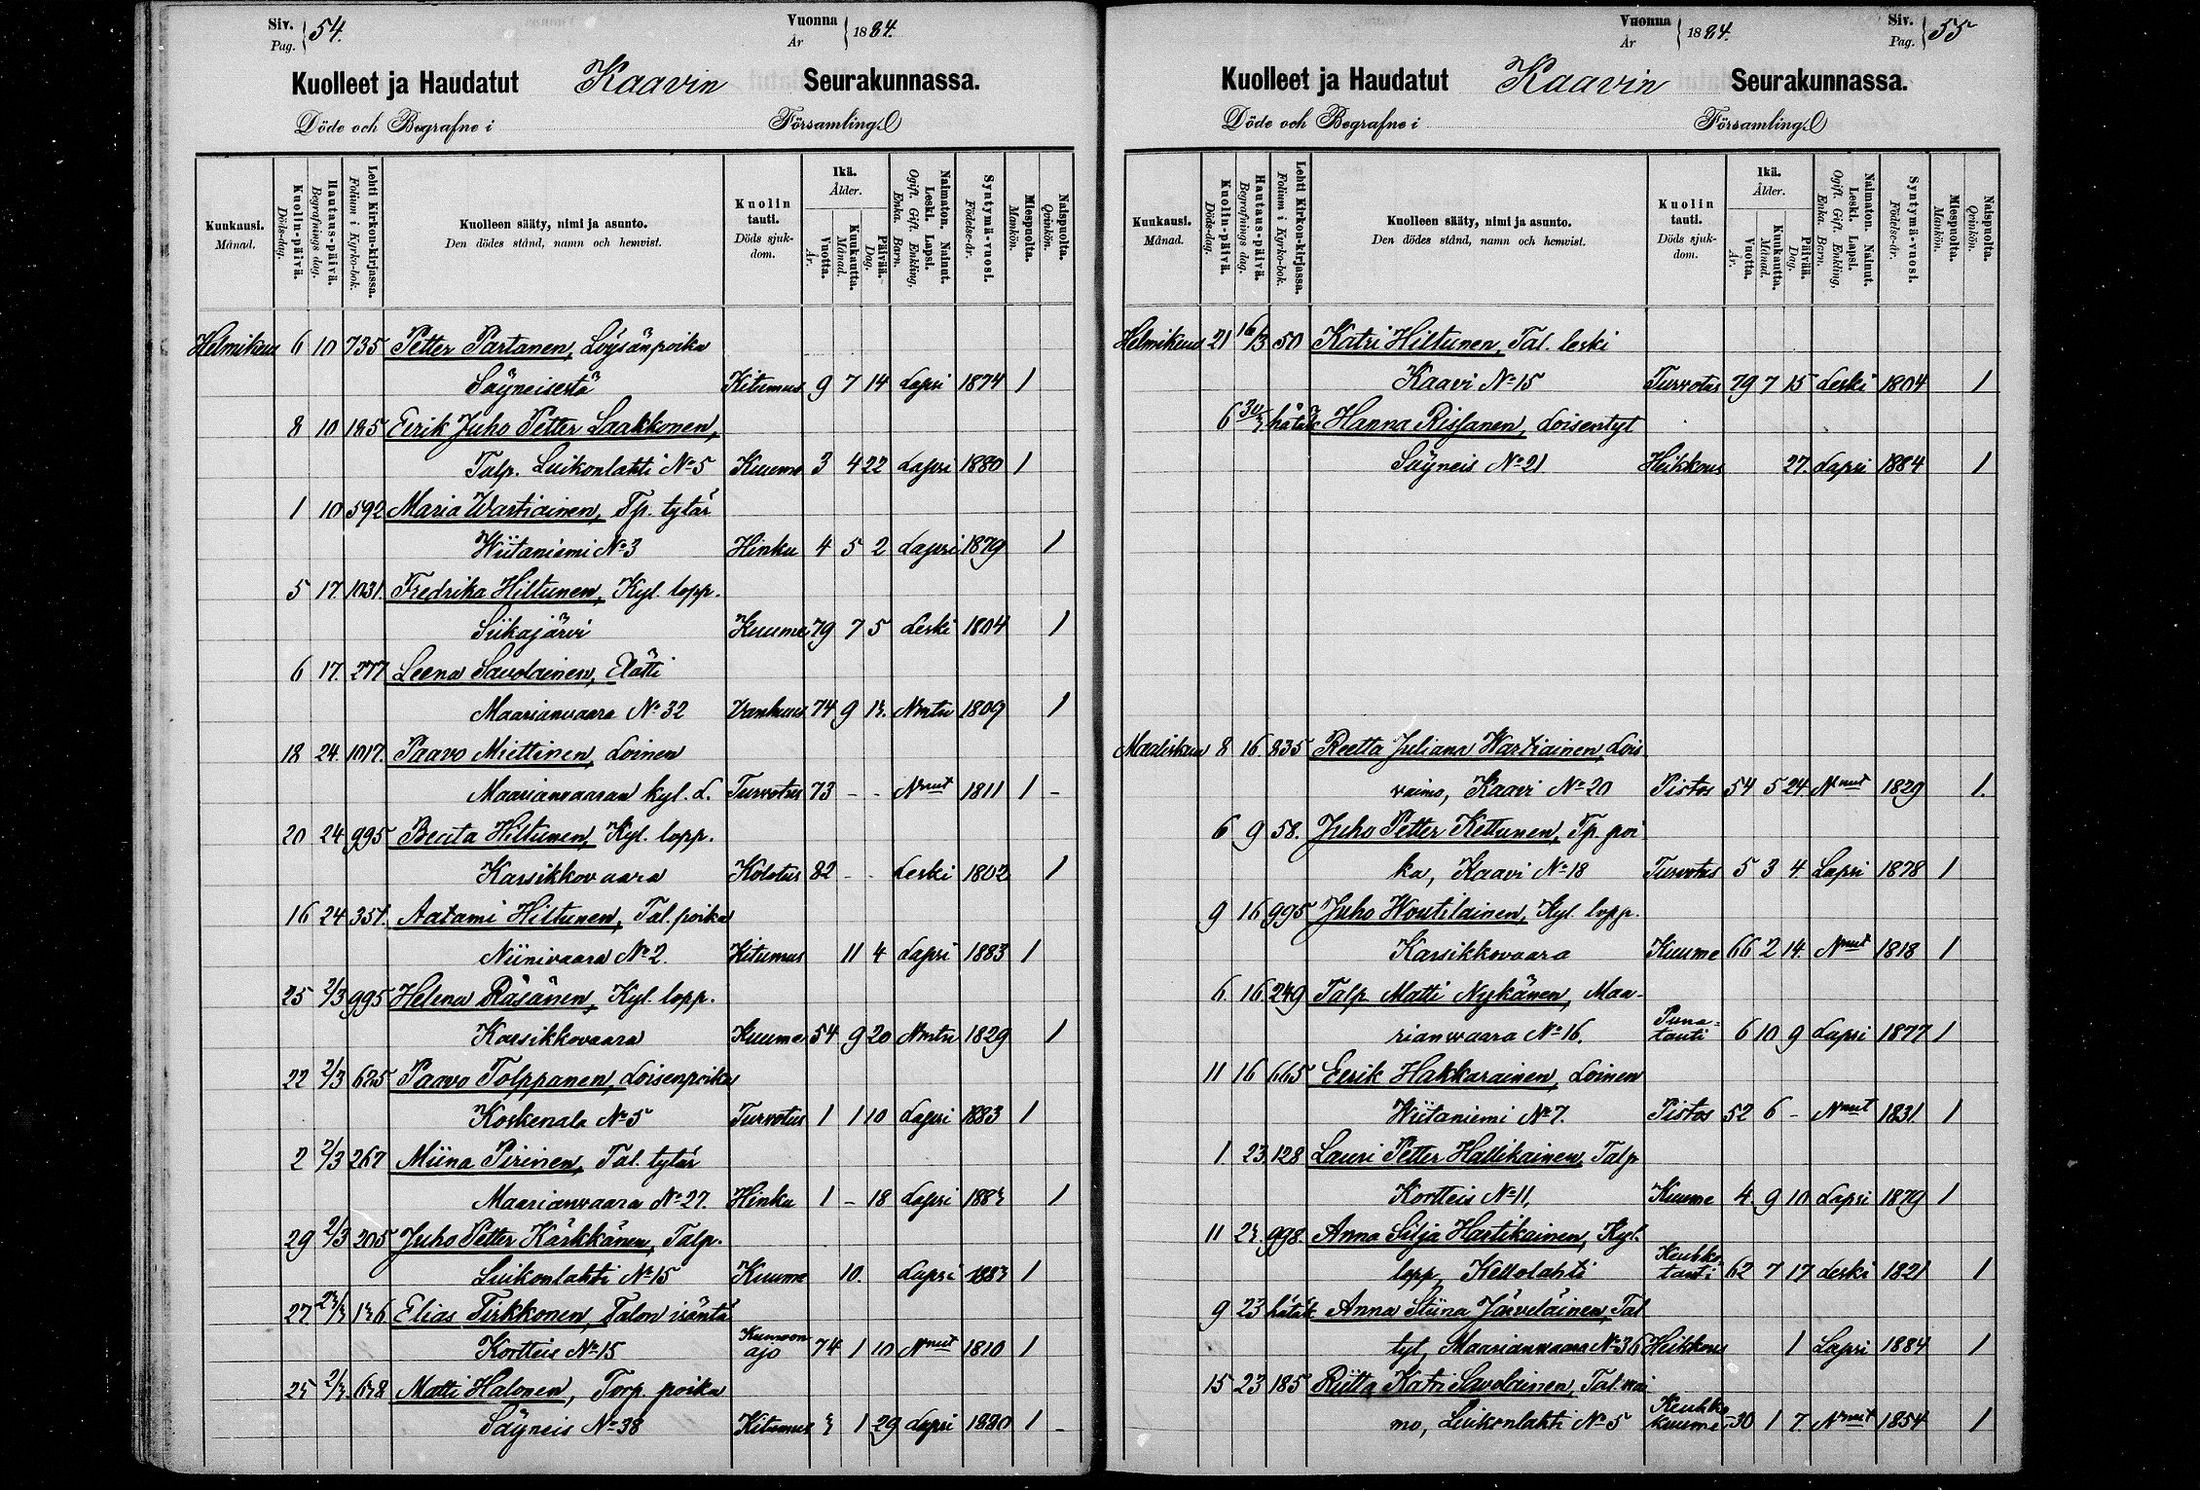 Siv. Pag. 54.
Vuonna År 1884.
Kuolleet ja Haudatut Kaavin Seurakunnassa.
Döde och Begrafne i Församling.
Kuukausi. Månad.
Kuolin-päivä. Döds-dag.
Hautaus-päivä. Begrafnings dag.
Lehti Kirkon-kirjassa. Folium i Kyrko-bok.
Kuolleen sääty, nimi ja asunto. Den dödes stånd, namn och hemvist.
Kuolin tauti. Döds sjuk-dom.
Ikä. Ålder.
Vuotta. År.
Kuukautta. Månad.
Päivää. Dag.
Naimaton. Nainut. Leski. Lapsi. Ogift. Gift. Enkling, Enka. Barn.
Syntymä-vuosi. Födelse-år.
Miespuolta. Mankön.
Naispuolta. Qvinkön.
Helmikuu 6 10 735 Petter Partanen, Löysänpoika
Säyneisestä Kitumus 9 7 14 Lapsi 1874 1
8 10 185 Eerik Juho Petter Laakkonen,
Talp. Luikonlahti No 5 Kuume 3 4 22 Lapsi 1880 1
1 10 592 Maria Wartiainen, Tp. tytär
Wiitaniemi No 3 Hinku 4 5 2 Lapsi 1879 1
5 17. 1031. Fredrika Hiltunen, Kyl. lopp.
Siikajärvi Kuume 79 7 5 Leski 1804 1
6 17. 277 Leena Savolainen, Elätti
Maarianvaara No 32 Vanhuus 74 9 13. Nmtn 1809 1
18 24. 1017. Paavo Miettinen, Loinen
Maarianvaaran kyl. L. Turvotus 73 - - Nnut 1811 1 -
20 24 995 Beata Hiltunen, Kyl. lopp.
Karsikkovaara Kolotus 82 - - Leski 1802 1
16 24 351. Aatami Hiltunen, Tal. poika
Niinivaara No 2. Kitumus 11 4 Lapsi 1883 1
25 2/3 995 Helena Räsänen, Kyl. lopp.
Karsikkovaara Kuume 54 9 20 Nmtn 1829 1
22 2/3 625 Paavo Tolppanen, Loisenpoika
Koskenala No 5 Turvotus 1 1 10 Lapsi 1883 1
2 2/3 267 Miina Pirinen, Tal. tytär
Maarianvaara No 27. Hinku 1 - 18 Lapsi 1883 1
29 2/3 205 Juho Petter Kärkkänen, Talp.
Luikonlahti No 15 Kuume 10. Lapsi 1883 1
27 23/3 136 Elias Tirkkonen, Talon isäntä
Kortteis No 15 Kuumoon ajo 74 1 10 Nnut 1810 1
25 2/3 638 Matti Halonen, Torp. poika
Säyneis No 38 Kitumus 3 1 29 Lapsi 1880 1 -
Vuonna År 1884.
Siv. Pag. 55
Kuolleet ja Haudatut Kaavin Seurakunnassa.
Döde och Begrafne i Församling.
Kuukausi. Månad.
Kuolin-päivä. Döds-dag.
Hautaus-päivä. Begrafnings dag.
Lehti Kirkon-kirjassa. Folium i Kyrko-bok.
Kuolleen sääty, nimi ja asunto. Den dödes stånd, namn och hemvist.
Kuolin tauti. Döds sjuk-dom.
Ikä. Ålder.
Vuotta. År.
Kuukautta. Månad.
Päivää. Dag.
Naimaton. Nainut. Leski. Lapsi. Ogift. Gift. Enkling, Enka. Barn.
Syntymä-vuosi. Födelse-år.
Miespuolta. Mankön.
Naispuolta. Qvinkön.
Helmikuu 21 16/3 50 Katri Hiltunen, Tal. leski
Kaavi No 15 Turvotus 79 7 15 Leski 1804 1
6 30/3 hätäk Hanna Rissanen, Loisentyt
Säyneis No 21 Heikkous 27. Lapsi 1884 1
Maaliskuu 8 16. 835 Reetta Juliana Wartiainen, Lois
vaimo, Kaavi No 20 Pistos 54 5 24 Nnut 1829 1.
6 9 58. Juho Petter Kettunen, Tp. poi
ka, Kaavi No 18 Turvotus 5 3 4 Lapsi 1878 1
9 16 995 Juho Woutilainen, Kyl. lopp.
Karsikkovaara Kuume 66 2 14. Nnut 1818 1
6. 16 249 Talp. Matti Nykänen, Maa-
rianvaara No 16. Puna-tauti 6 10 9 Lapsi 1877 1
11 16 665 Eerik Hakkarainen, Loinen
Wiitaniemi No 7. Pistos 52 6 - Nnut 1831. 1
1. 23. 128 Lauri Petter Hallikainen, Talp
Kortteis No 11, Kuume 4. 9 10 Lapsi 1879 1
11 23. 998. Anna Silja Hartikainen, Kyl.
lopp, Kellolahti Keuhko tauti 62 7 17 Leski 1821 1
9 23 hätäk. Anna Stiina Järveläinen, Tal
tyt, Maarianvaara No 36 Heikkous 1 Lapsi 1884 1
15 23 185 Riitta Katri Savolainen, Tal. vai
mo, Luikonlahti No 5 Keuhko kuume 30 1 7. Nnut 1854 1